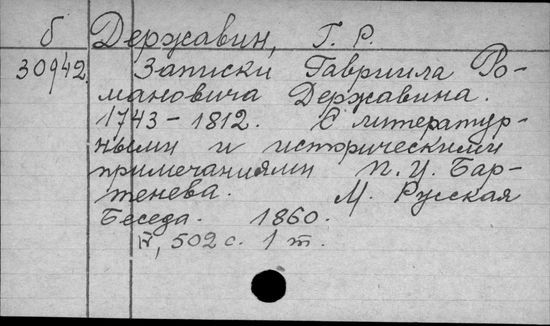 б Державин, Г. Р.
30942. Записки Гавриила Ро-
мановича Державина.
1743-1812. С литератур-
ными и историческими
примечаниями П. И. Бар-
тенева. М. Русская
Беседа. 1860.
IV, 502 с. 1 т.